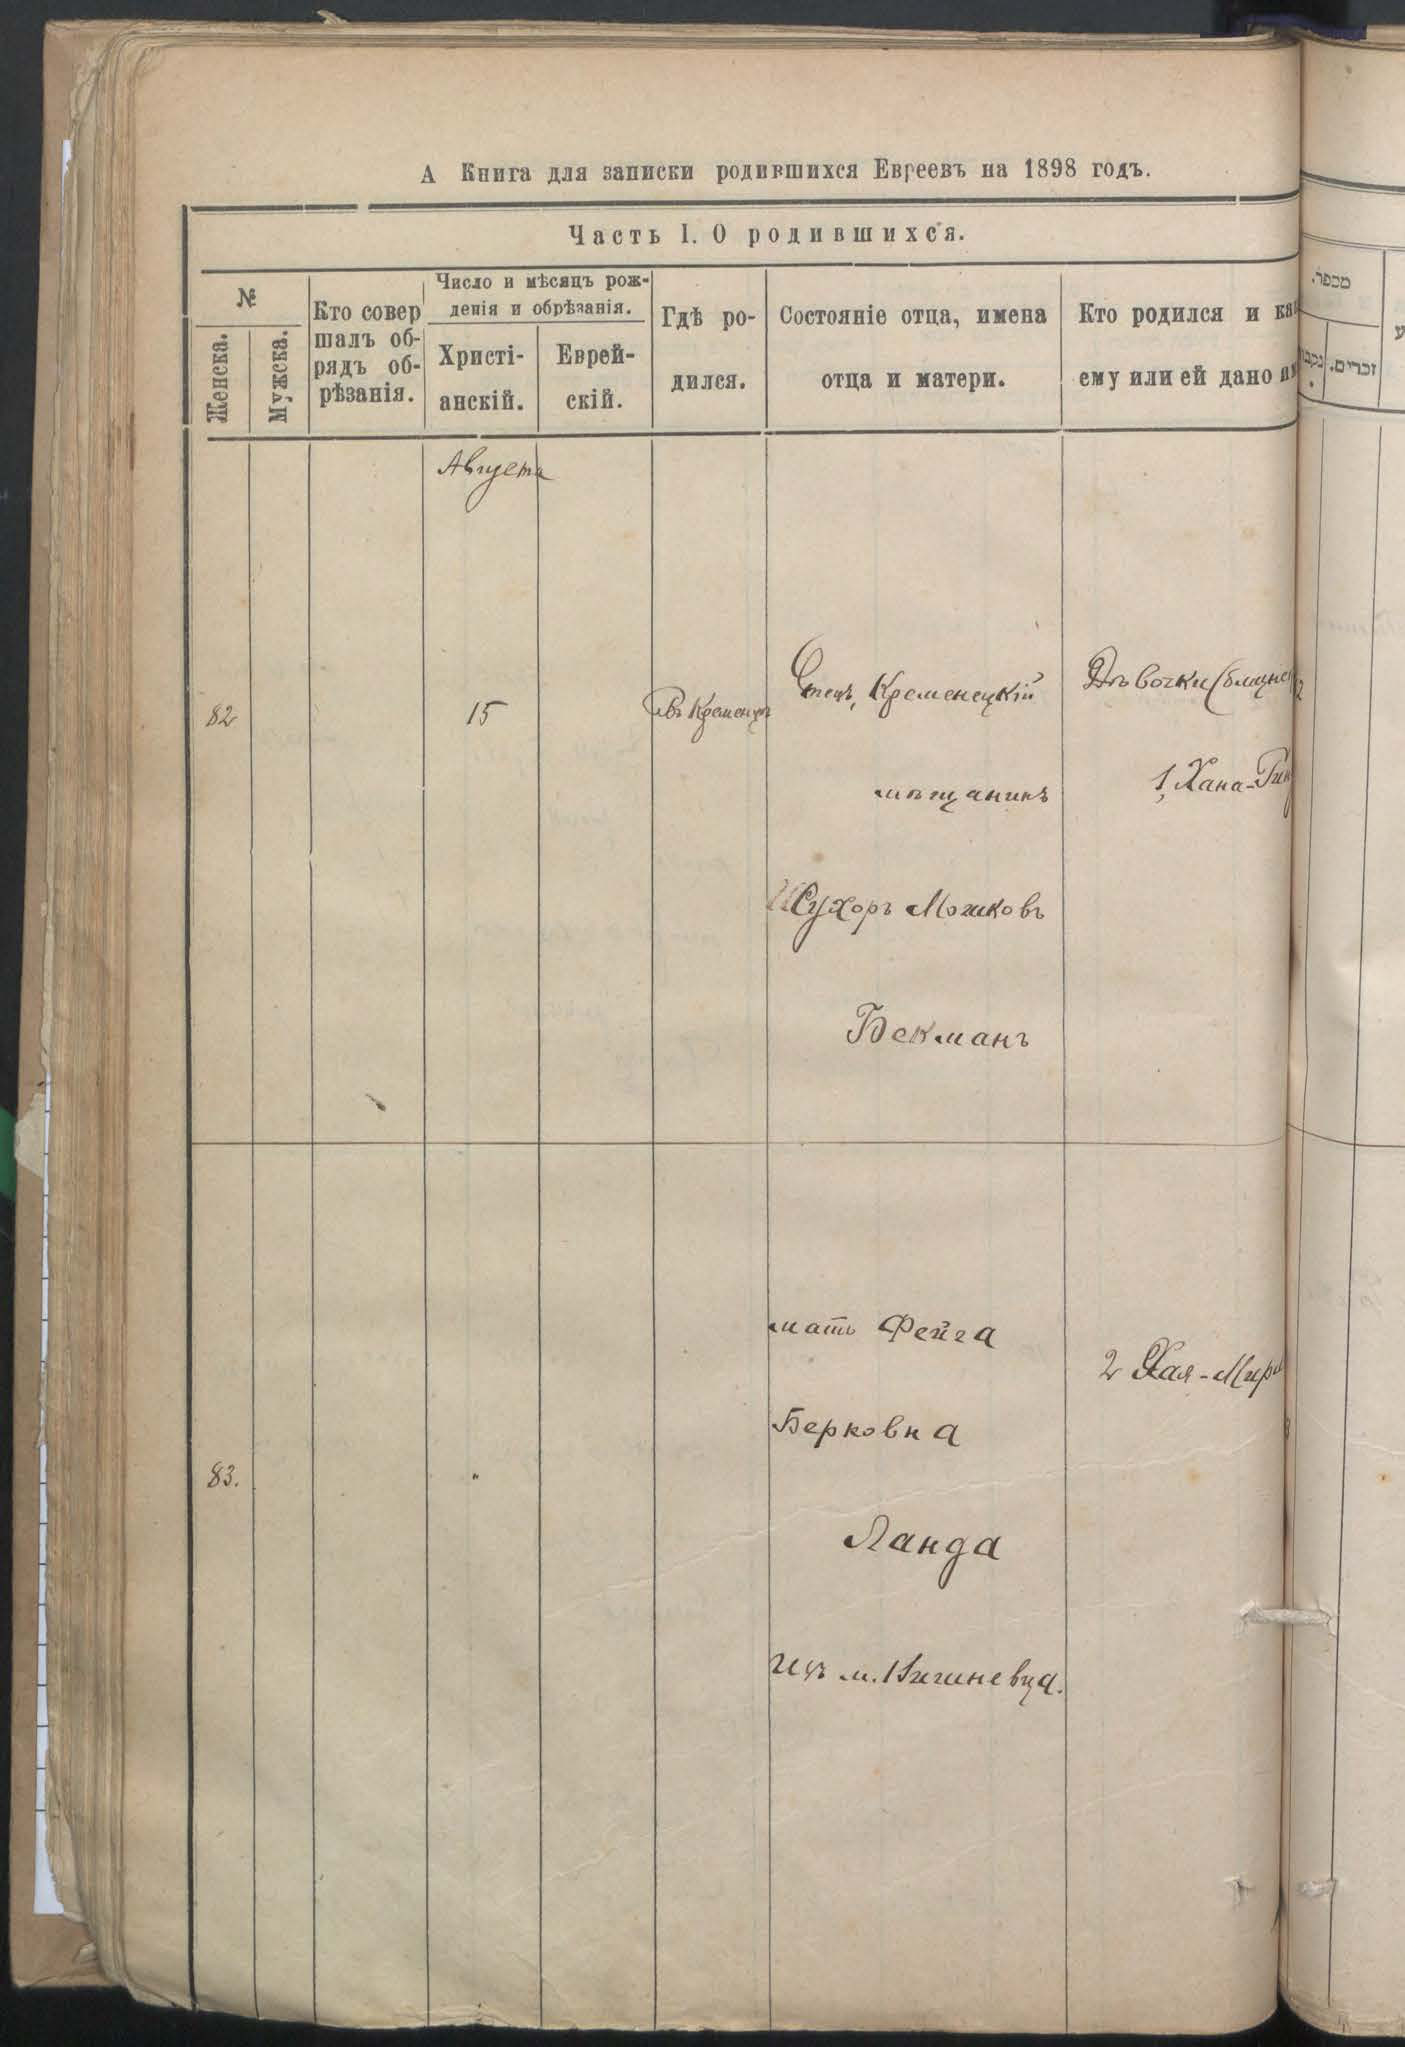 А Книга для записки родившихся Евреевъ на 1898 годъ.
Часть I. О родившихся.
№
Женска.
Мужска.
Кто совер
шалъ об-
рядъ об-
рѣзанія.
Число и мѣсяцъ рож-
денія и обрѣзанія.
Христі-
анскій.
Еврей-
скій.
Гдѣ ро-
дился.
Состояніе отца, имена
отца и матери.
Кто родился и ка
ему или ей дано им
מכפר.
זכרים.
נקבו
Августа
82
15
въ Кременцѣ
Отецъ, Кременецкій
мѣщанинъ
Шухоръ Мошковъ
Бекманъ
Дѣвочки (близне
1, Хана-
83.
"
мать Фейга
Берковна
Ланда
изъ м. Вишневца.
2 Хая-Мир